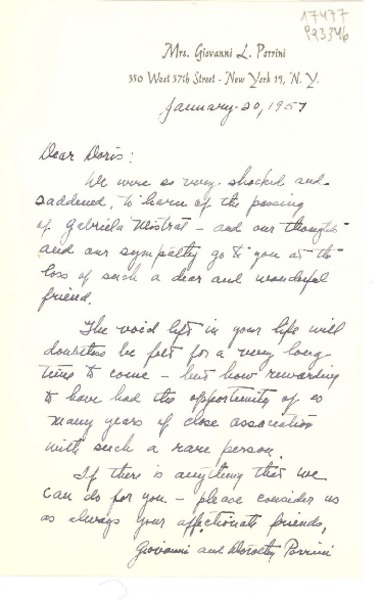 17477
Mrs. Giovanni L. Porrini
350 West 57th Street - New York 19, N. Y.
January 20, 1957
Dear Doris:
We were so very shocked and
saddened, to learn of the passing
of Gabriela Mistral - and our thoughts
and our sympathy go to you at the
loss of such a dear and wonderful
friend.
The void left in your life will
doubtless be felt for a very long
time to come - but how rewarding
to have had the opportunity of so
many years of close association
with such a rare person.
If there is anything that we
can do for you - please consider us
as always your affectionate friends,
Giovanni and Dorothy Porrini